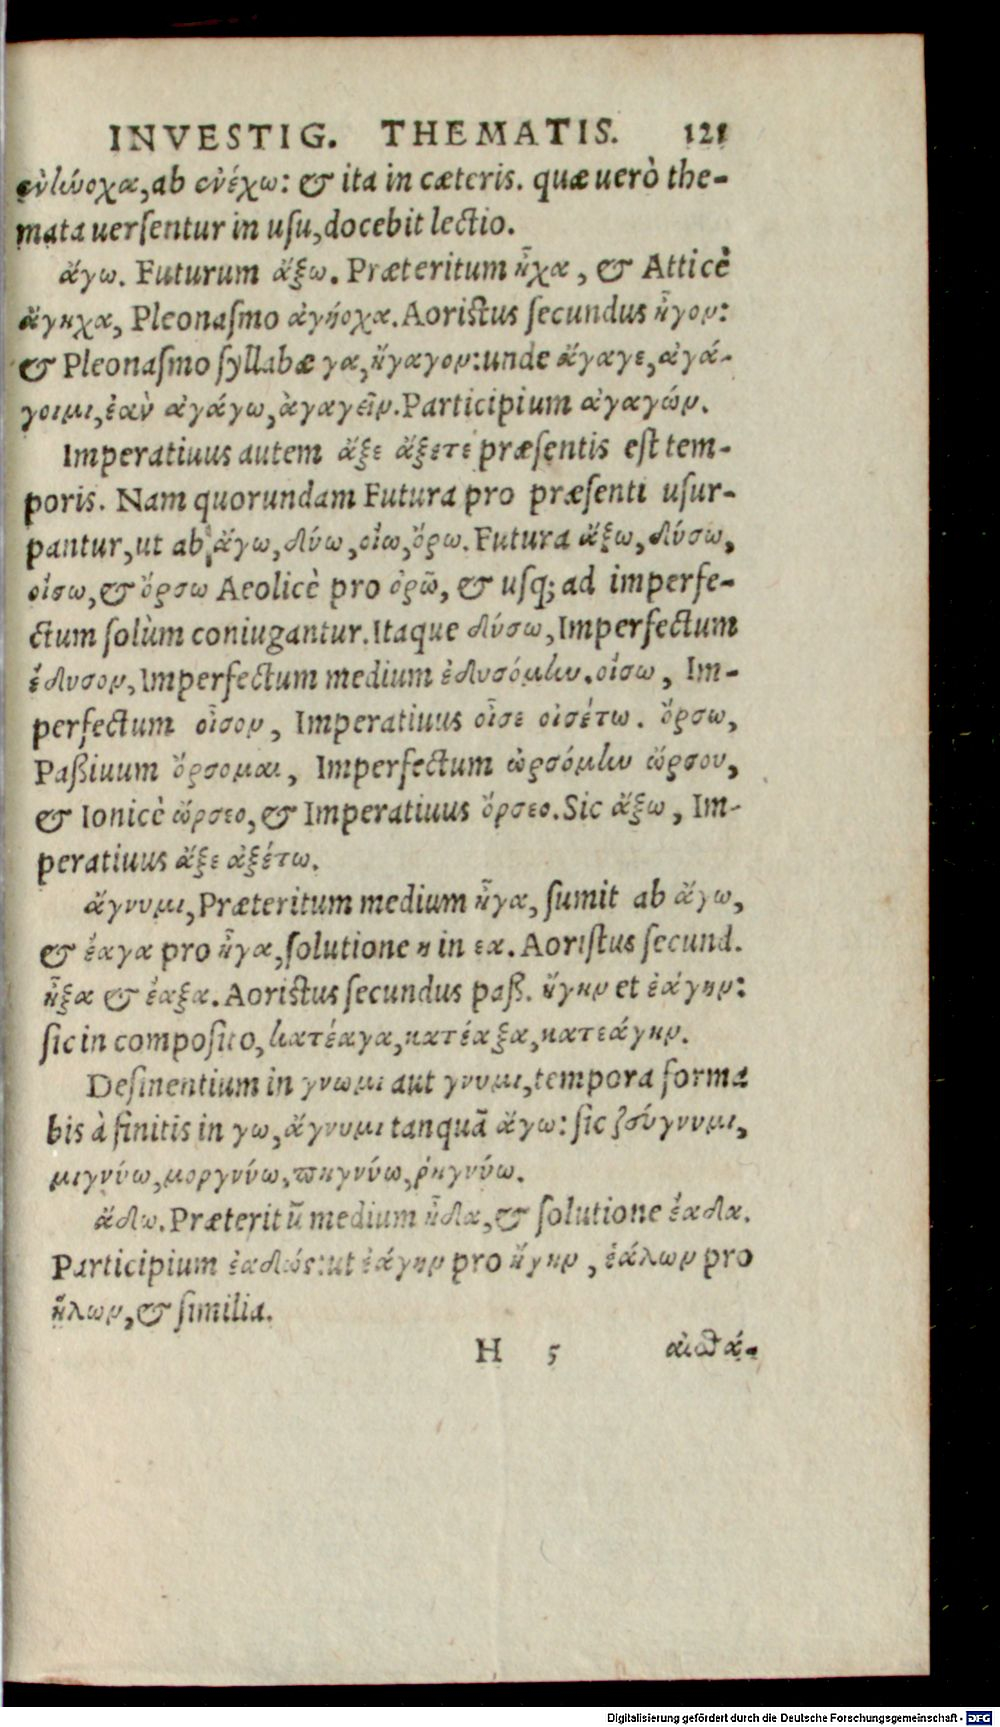 INVESTIG. THEMATIS. 121
ἐνήνοχα, ab ἐνέχω: & ita in cæteris. quæ uerò the-
mata uersentur in usu, docebit lectio.
ἄγω. Futurum ἄξω. Præteritum ἦχα, & Atticè
ἄγηχα, Pleonasmo ἀγήοχα. Aoristus secundus ἦγον:
& Pleonasmo syllabæ γα, ἤγαγον: unde ἄγαγε, ἀγά-
γοιμι, ἐὰν ἀγάγω, ἀγαγεῖν. Participium ἀγαγών.
Imperatiuus autem ἄξε ἄξετε præsentis est tem-
poris. Nam quorundam Futura pro præsenti usur-
pantur, ut ab ἄγω, δύω, οἴω, ὄρω. Futura ἄξω, δύσω,
οἴσω, & ὄρσω Aeolicè pro ὀρῶ, & usq; ad imperfe-
ctum solùm coniugantur. Itaque δύσω, Imperfectum
ἔδυσον, Imperfectum medium ἐδυσόμην. οἴσω, Im-
perfectum οἶσον, Imperatiuus οἶσε οἰσέτω. ὄρσω,
Paßiuum ὄρσομαι, Imperfectum ὠρσόμην ὤρσου,
& Ionicè ὤρσεο, & Imperatiuus ὄρσεο. Sic ἄξω, Im-
peratiuus ἄξε ἀξέτω.
ἄγνυμι, Præteritum medium ἦγα, sumit ab ἄγω,
& ἔαγα pro ἦγα, solutione η in εα. Aoristus secund.
ἦξα & ἔαξα. Aoristus secundus paß. ἤγην et ἐάγην:
sic in composito, κατέαγα, κατέαξα, κατεάγην.
Desinentium in γνωμι aut γνυμι, tempora forma
bis à finitis in γω, ἄγνυμι tanquã ἄγω: sic ζεύγνυμι,
μιγνύω, μοργνύω, πηγνύω, ῥηγνύω.
ἄδω. Præteritũ medium ἦδα, & solutione ἔαδα.
Participium ἐαδώς: ut ἐάγην pro ἤγην, ἑάλων pro
ἥλων, & similia.
H 5 αἰσθά-
Digitalisierung gefördert durch die Deutsche Forschungsgemeinschaft - DFG